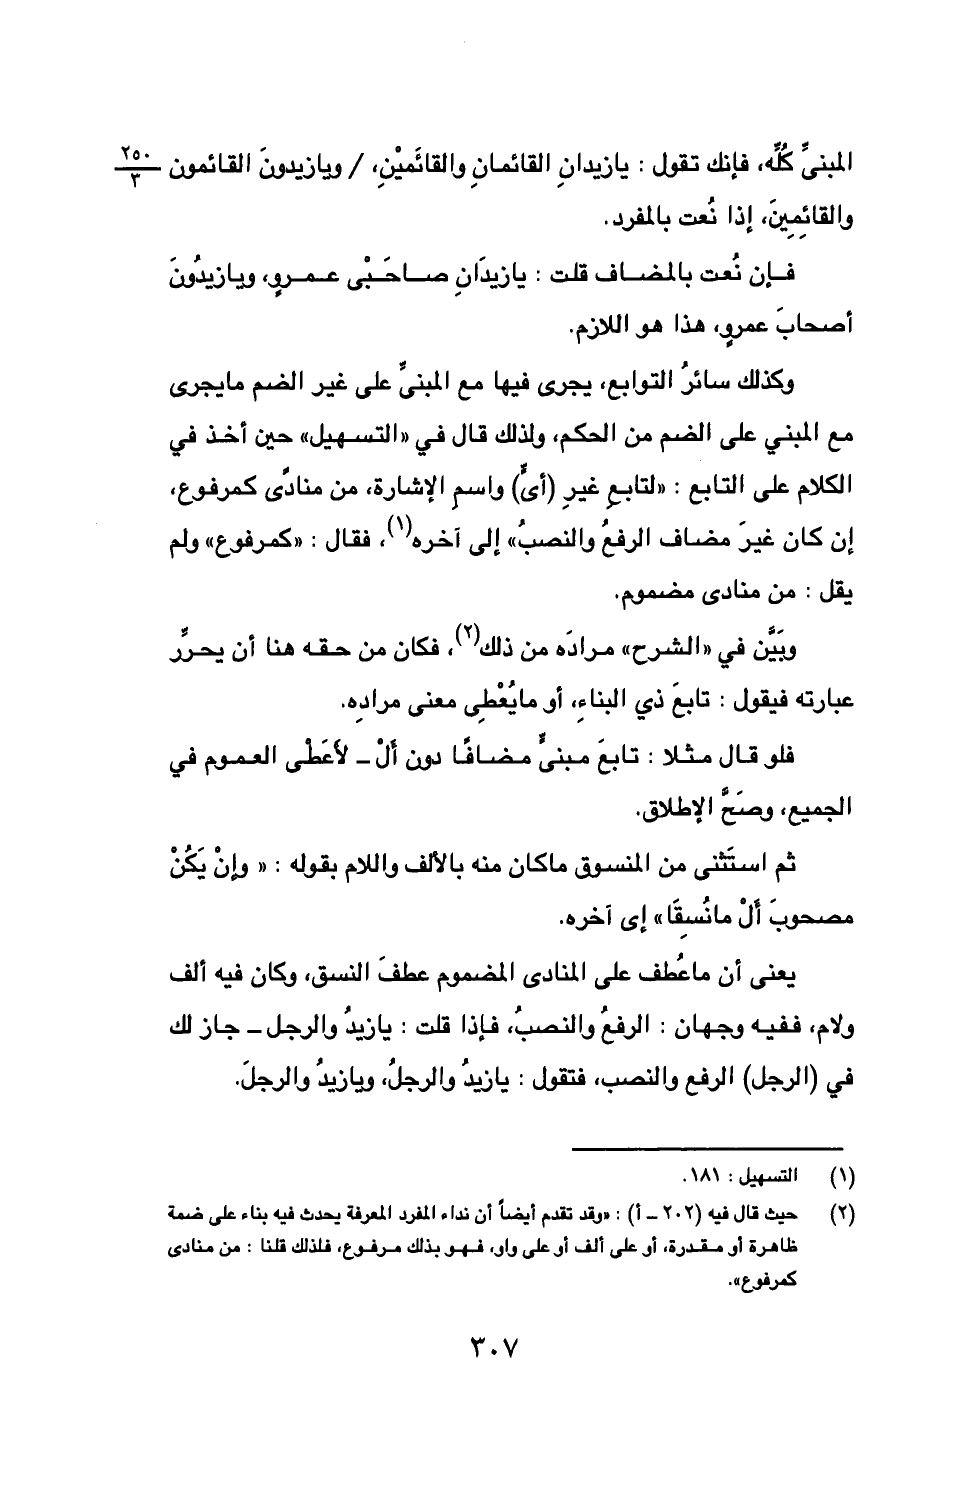 المبنىِّ كُلِّه، فإنك تقول : يازيدانِ القائمانِ والقائَميْنِ، / ويازيدونَ القائمون ٢٥٠/٣
والقائِمِينَ، إذا نُعت بالمفرد.
فـإن نُعت بالمضـاف قلت : يازيدَانِ صـاحَـبْى عـمـروٍ، ويازيدُونَ
أصحابَ عمروٍ، هذا هو اللازم.
وكذلك سائرُ التوابع، يجرى فيها مع المبنىِّ على غير الضم مايجرى
مع المبني على الضم من الحكم، ولذلك قال في «التسهيل» حين أخذ في
الكلام على التابع : «لتابعِ غيرِ (أىٍّ) واسمِ الإشارة، من منادًى كمرفوع،
إن كان غيرَ مضاف الرفعُ والنصبُ» إلى آخره(١)، فقال : «كمرفوع» ولم
يقل : من منادى مضموم.
وبَيَّن في «الشرح» مرادَه من ذلك(٢)، فكان من حقه هنا أن يحرِّر
عبارته فيقول : تابعَ ذي البناءِ، أو مايُعْطِى معنى مرادِه.
فلو قال مثلا : تابعَ مبنىٍّ مضافًا دون ألْ ــ لأعَطْى العموم في
الجميع، وصَحَّ الإطلاق.
ثم استَثْنى من المنسوق ماكان منه بالألف واللام بقوله : « وإنْ يَكُنْ
مصحوبَ ألْ مانُسِقَا» إى آخره.
يعنى أن ماعُطف على المنادى المضموم عطفَ النسق، وكان فيه ألف
ولام، ففيه وجهان : الرفعُ والنصبُ، فإذا قلت : يازيدُ والرجل ــ جاز لك
في (الرجل) الرفع والنصب، فتقول : يازيدُ والرجلُ، ويازيدُ والرجلَ.
(١) التسهيل : ١٨١.
(٢) حيث قال فيه (٢٠٢ ــ أ) : «وقد تقدم أيضاً أن نداء المفرد المعرفة يحدث فيه بناء على ضمة
ظاهرة أو مقدرة، أو على ألف أو على واو، فهو بذلك مرفوع، فلذلك قلنا : من منادى
كمرفوع».
٣٠٧